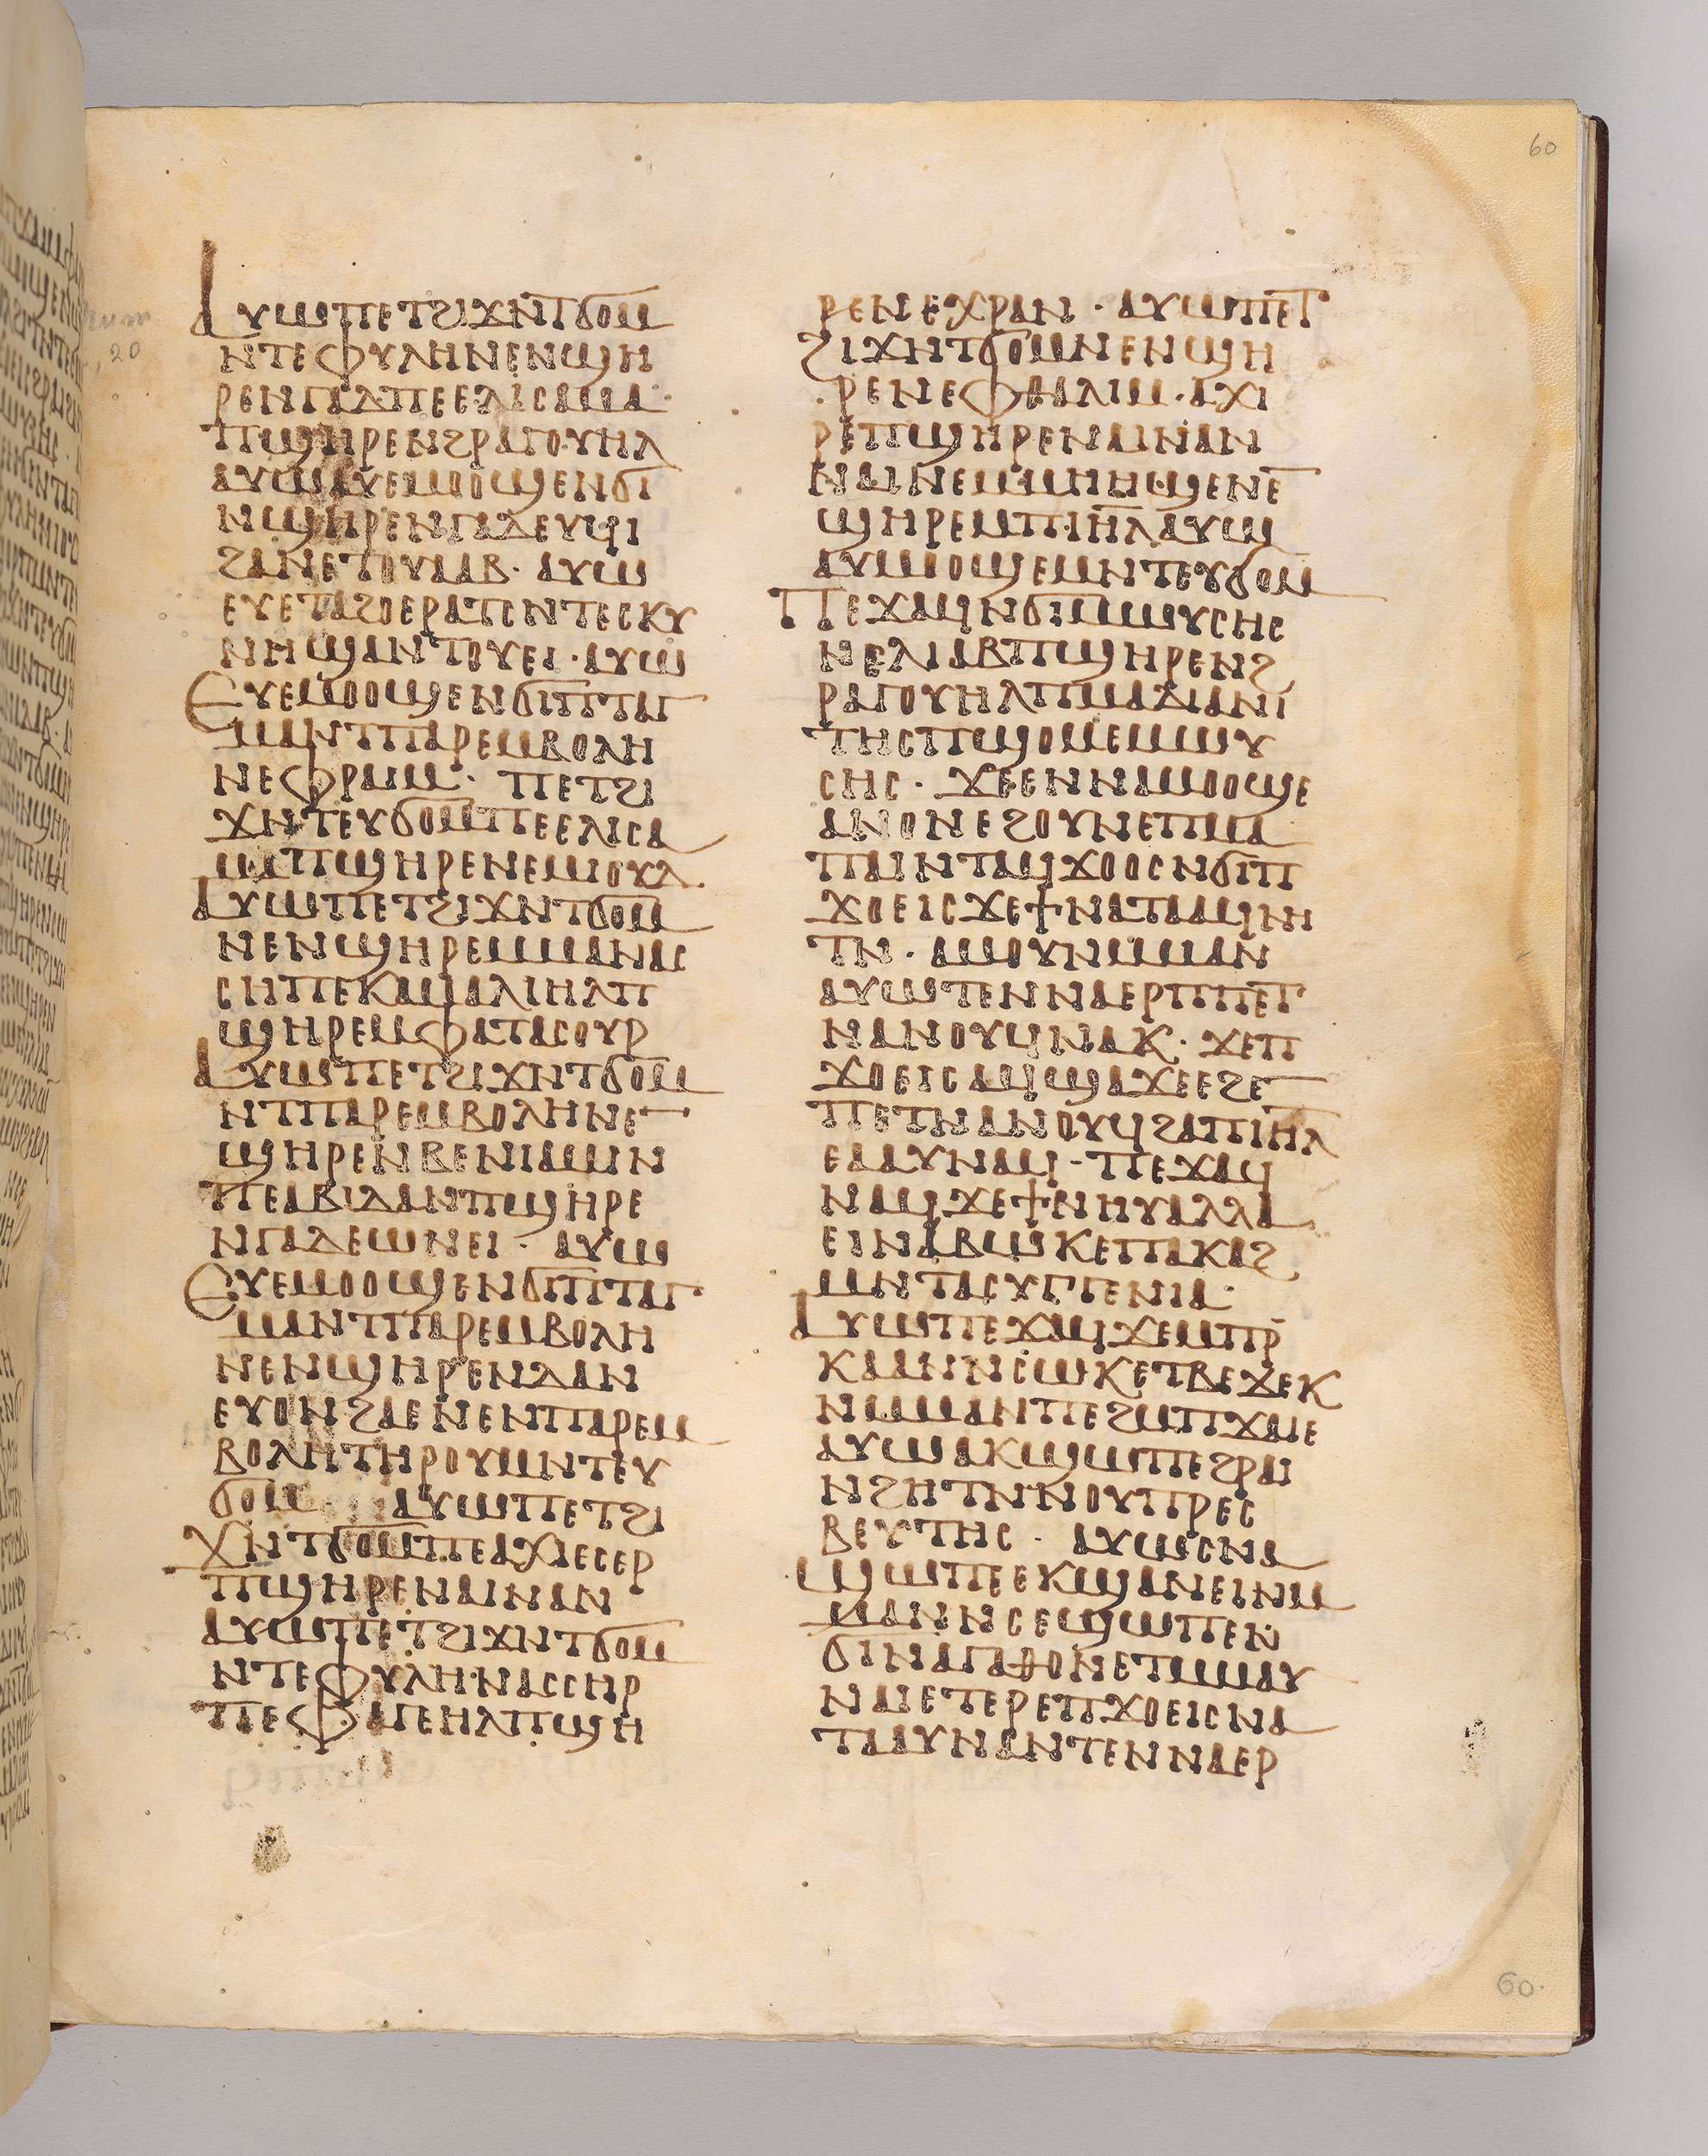 60
Num
10, 20
ⲀⲨⲰⲠⲈⲦϨⲒϪⲚⲦϬⲞⲘ
ⲚⲦⲈⲪⲨⲖⲎⲚⲈⲚϢⲎ
ⲢⲈⲚⲄⲀⲆⲠⲈⲈⲖⲒⲤⲀⲘⲀ·
ⲠϢⲎⲢⲈⲚϨⲢⲀⲄⲞⲨⲎⲖ
ⲀⲨⲰⲀⲨⲈⲘⲞⲞϢⲈⲚϬⲒ
ⲚϢⲎⲢⲈⲚⲄⲀⲆⲈⲨϤⲒ
ϨⲀⲚⲈⲦⲞⲨⲀⲀⲂ· ⲀⲨⲰ
ⲈⲨⲈⲦⲀϨⲞⲈⲢⲀⲦⲤⲚⲦⲈⲤⲔⲨ
ⲚⲎϢⲀⲚⲦⲞⲨⲈⲒ· ⲀⲨⲰ
ⲈⲨⲈⲘⲞⲞϢⲈⲚϬⲒⲠⲦⲀⲄ
ⲘⲀⲚⲦⲠⲀⲢⲈⲘⲂⲞⲖⲎ
ⲚⲈⲪⲢⲀⲒⲘ· ⲠⲈⲦϨⲒ
ϪⲚⲦⲈⲨϬⲞⲘⲠⲈⲈⲖⲒⲤⲀ
ⲘⲀⲠϢⲎⲢⲈⲚⲈⲘⲒⲞⲨⲆ·
ⲀⲨⲰⲠⲈⲦϨⲒϪⲚⲦϬⲞⲘ
ⲚⲈⲚϢⲎⲢⲈⲘⲘⲀⲚⲀⲤ
ⲤⲎⲠⲈⲔⲀⲘⲀⲖⲒⲎⲖⲠ
ϢⲎⲢⲈⲘⲪⲀⲦⲀⲤⲞⲨⲢ
ⲀⲨⲰⲠⲈⲦϨⲒϪⲚⲦϬⲞⲘ
ⲚⲦⲠⲀⲢⲈⲘⲂⲞⲖⲎⲚⲈ̅
ϢⲎⲢⲈⲚⲂⲈⲚⲒⲀⲘⲒⲚ
ⲠⲈⲀⲂⲒⲆⲀⲚⲠϢⲎⲢⲈ
ⲚⲄⲀⲆⲈⲰⲚⲈⲒ· ⲀⲨⲰ
ⲈⲨⲈⲘⲞⲞϢⲈⲚϬⲒⲠⲦⲀⲄ
ⲘⲀⲚⲦⲠⲀⲢⲈⲘⲂⲞⲖⲎ
ⲚⲈⲚϢⲎⲢⲈⲚⲆⲀⲚ
ⲈⲨⲞⲚϨⲀⲈⲚⲈⲚⲠⲀⲢⲈⲘ
ⲂⲞⲖⲎⲦⲎⲢⲞⲨⲘⲚⲦⲈⲨ
ϬⲞⲘ ⲀⲨⲰⲠⲈⲦϨⲒ
ϪⲚⲦϬⲞⲘⲠⲈⲀⲬⲒⲈⲤⲈⲢ
ⲠϢⲎⲢⲈⲚⲀⲒⲚⲀⲚ
ⲀⲨⲰⲠⲈⲦϨⲒϪⲚⲦϬⲞⲘ
ⲚⲦⲈⲪⲨⲖⲎⲚⲀⲤⲤⲎⲢ
ⲠⲈⲪⲀⲄⲈⲎⲖⲠϢⲎ
ⲢⲈⲚⲈⲬⲢⲀⲚ· ⲀⲨⲰⲠⲈⲦ
ϨⲒϪⲚⲦϬⲞⲘⲚⲈⲚϢⲎ
ⲢⲈⲚⲈⲪⲐⲀⲖⲒⲘ· ⲀⲬⲒ
ⲢⲈⲠϢⲎⲢⲈⲚⲀⲒⲚⲀⲚ
ⲚⲀⲒⲚⲈⲘⲘⲎⲎϢⲈⲚⲈ̅
ϢⲎⲢⲈⲘⲠⲒⲎ̅ⲖⲀⲨⲰ
ⲀⲨⲘⲞⲞϢⲈⲘⲚⲦⲈⲨϬⲞⲘ
ⲠⲈϪⲀϤⲚϬⲒⲘⲰⲨⲤⲎⲤ
ⲚⲈⲖⲒⲀⲂⲠϢⲎⲢⲈⲚϨ
ⲢⲀⲄⲞⲨⲎⲖⲠⲘⲀⲆⲒⲀⲚⲒ
ⲦⲎⲤⲠϢⲞⲘⲈⲘⲘⲰⲨ
ⲤⲎⲤ· ϪⲈⲈⲚⲚⲀⲘⲞⲞϢⲈ
ⲀⲚⲞⲚⲈϨⲞⲨⲚⲈⲠⲘⲀ
ⲠⲀⲒⲚⲦⲀϤϪⲞⲞⲤⲚϬⲒⲠ
ϪⲞⲈⲒⲤϪⲈϮⲚⲀⲦⲀⲀϤⲚⲎ
ⲦⲚ· ⲀⲘⲞⲨⲚⲘⲘⲀⲚ
ⲀⲨⲰⲦⲈⲚⲚⲀⲈⲢⲠⲠⲈⲦ
ⲚⲀⲚⲞⲨϤⲚⲀⲔ· ϪⲈⲠ
ϪⲞⲈⲒⲤⲀϤϢⲀϪⲈⲈϨⲈ̅
ⲠⲈⲦⲚⲀⲚⲞⲨϤϨⲀⲠⲒⲎ̅Ⲗ
ⲈⲀⲀⲨⲚⲀϤ· ⲠⲈϪⲀϤ
ⲚⲀϤϪⲈϮⲚⲎⲨⲀⲖⲖⲀ
ⲈⲒⲚⲀⲂⲰⲔⲈⲠⲀⲔⲀϨ
ⲘⲚⲦⲀⲤⲨⲄⲄⲈⲚⲒⲀ·
ⲀⲨⲰⲠⲈϪⲀϤϪⲈⲘⲠⲢ
ⲔⲀⲀⲚⲚⲤⲰⲔⲈⲦⲂⲈϪⲈⲔ
ⲚⲘⲘⲀⲚⲠⲈϨⲘⲠϪⲀⲒⲈ
ⲀⲨⲰⲀⲔϢⲰⲠⲈϨⲢⲀⲒ
ⲚϨⲎⲦⲚⲚⲞⲨⲠⲢⲈⲤ
ⲂⲈⲨⲦⲎⲤ· ⲀⲨⲰⲤⲚⲀ
ϢⲰⲠⲈⲈⲔϢⲀⲚⲈⲒⲚⲘ
ⲘⲀⲚⲚⲤⲈϢⲰⲠⲈⲚ
ϬⲒⲚⲀⲄⲀⲐⲞⲚⲈⲦⲘⲘⲀⲨ
ⲚⲀⲒⲈⲦⲈⲢⲈⲠϪⲞⲈⲒⲤⲚⲀ
ⲦⲀⲀⲨⲚⲀⲚⲦⲈⲚⲚⲀⲈⲢ
60.